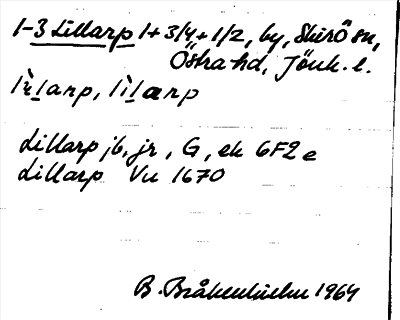 1-3 Lillarp 1+3/4+1/2, by, Skirö sn,
Östra hd, Jönk. l.
Lillarp jb, jr, G, ek 6F2e
Lillarp Vu 1670
B. Bråkenhielm 1964